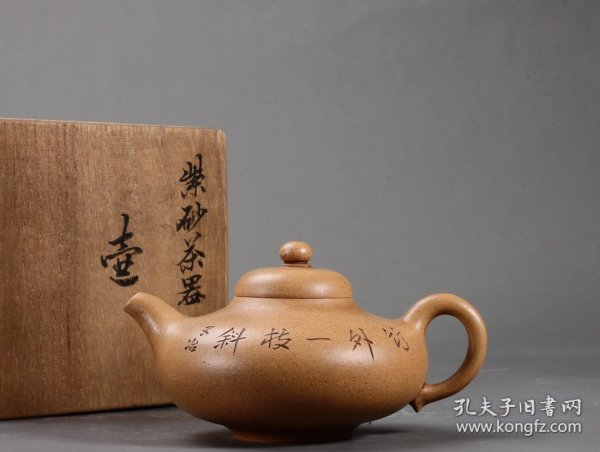 紫砂茶器
壷
竹外一枝斜
孔夫子旧書网
www.kongfz.com